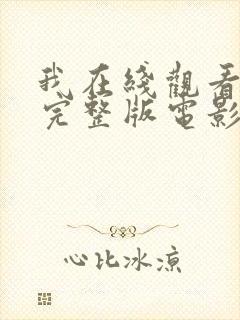 我在綫觀看
完整版電影
心比冰涼